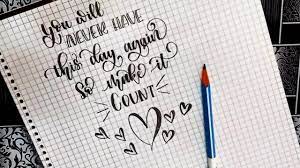 You will
NEVER HAVE
this day again
so make it
COUNT